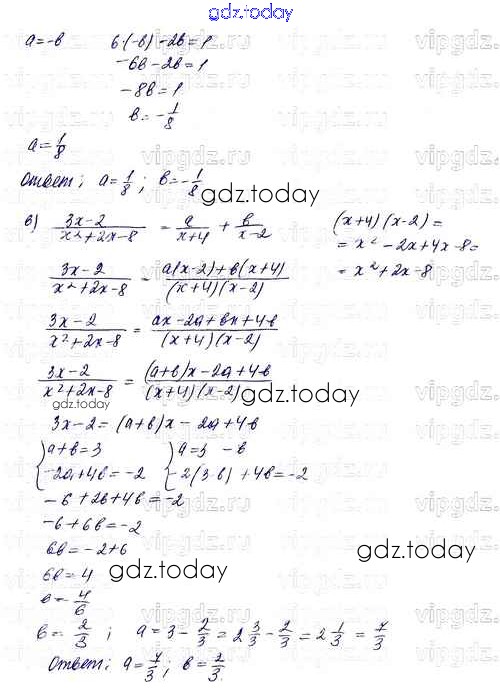 gdz.today
a=-b 6·(-b)-2b=1
-6b-2b=1
-8b=1
b=-1/8
a=1/8
Ответ: a=1/8; b=-1/8
gdz.today
в) (3x-2)/(x²+2x-8) = a/(x+4) + b/(x-2) (x+4)(x-2)=
= x²-2x+4x-8=
= x²+2x-8
(3x-2)/(x²+2x-8) = (a(x-2)+b(x+4))/((x+4)(x-2))
(3x-2)/(x²+2x-8) = (ax-2a+bx+4b)/((x+4)(x-2))
(3x-2)/(x²+2x-8) = ((a+b)x-2a+4b)/((x+4)(x-2))
gdz.today
gdz.today
3x-2=(a+b)x-2a+4b
{a+b=3 {a=3-b
{-2a+4b=-2 {-2(3-b)+4b=-2
-6+2b+4b=-2
-6+6b=-2
6b=-2+6
6b=4
gdz.today
gdz.today
b=4/6
b=2/3; a=3-2/3=2 3/3-2/3=2 1/3=7/3
Ответ: a=7/3; b=2/3.
vipgdz.ru